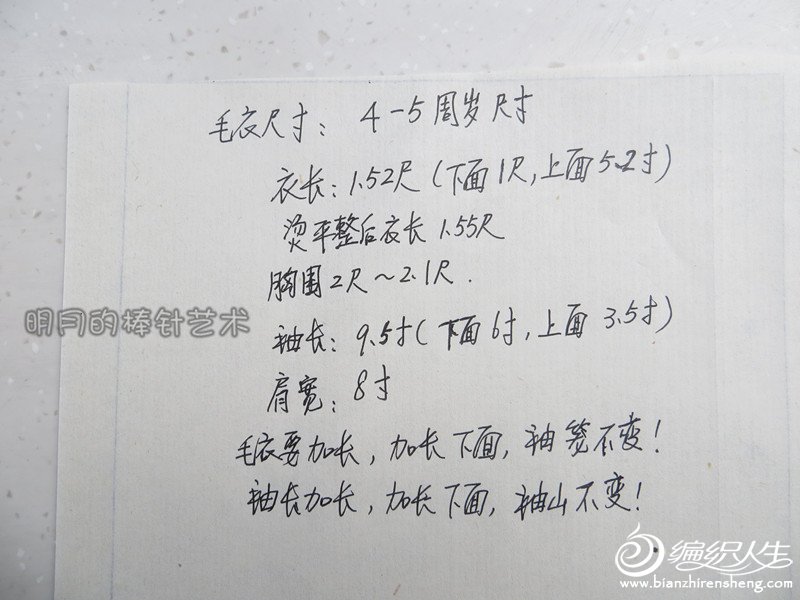 毛衣尺寸： 4-5周岁尺寸
衣长：1.52尺（下面1尺，上面5.2寸）
烫平整后衣长1.55尺
胸围2尺～2.1尺.
明月的棒针艺术
袖长：9.5寸（下面6寸，上面3.5寸）
肩宽：8寸
毛衣要加长，加长下面，袖笼不变！
袖长加长，加长下面，袖山不变！
编织人生
www.bianzhirensheng.com